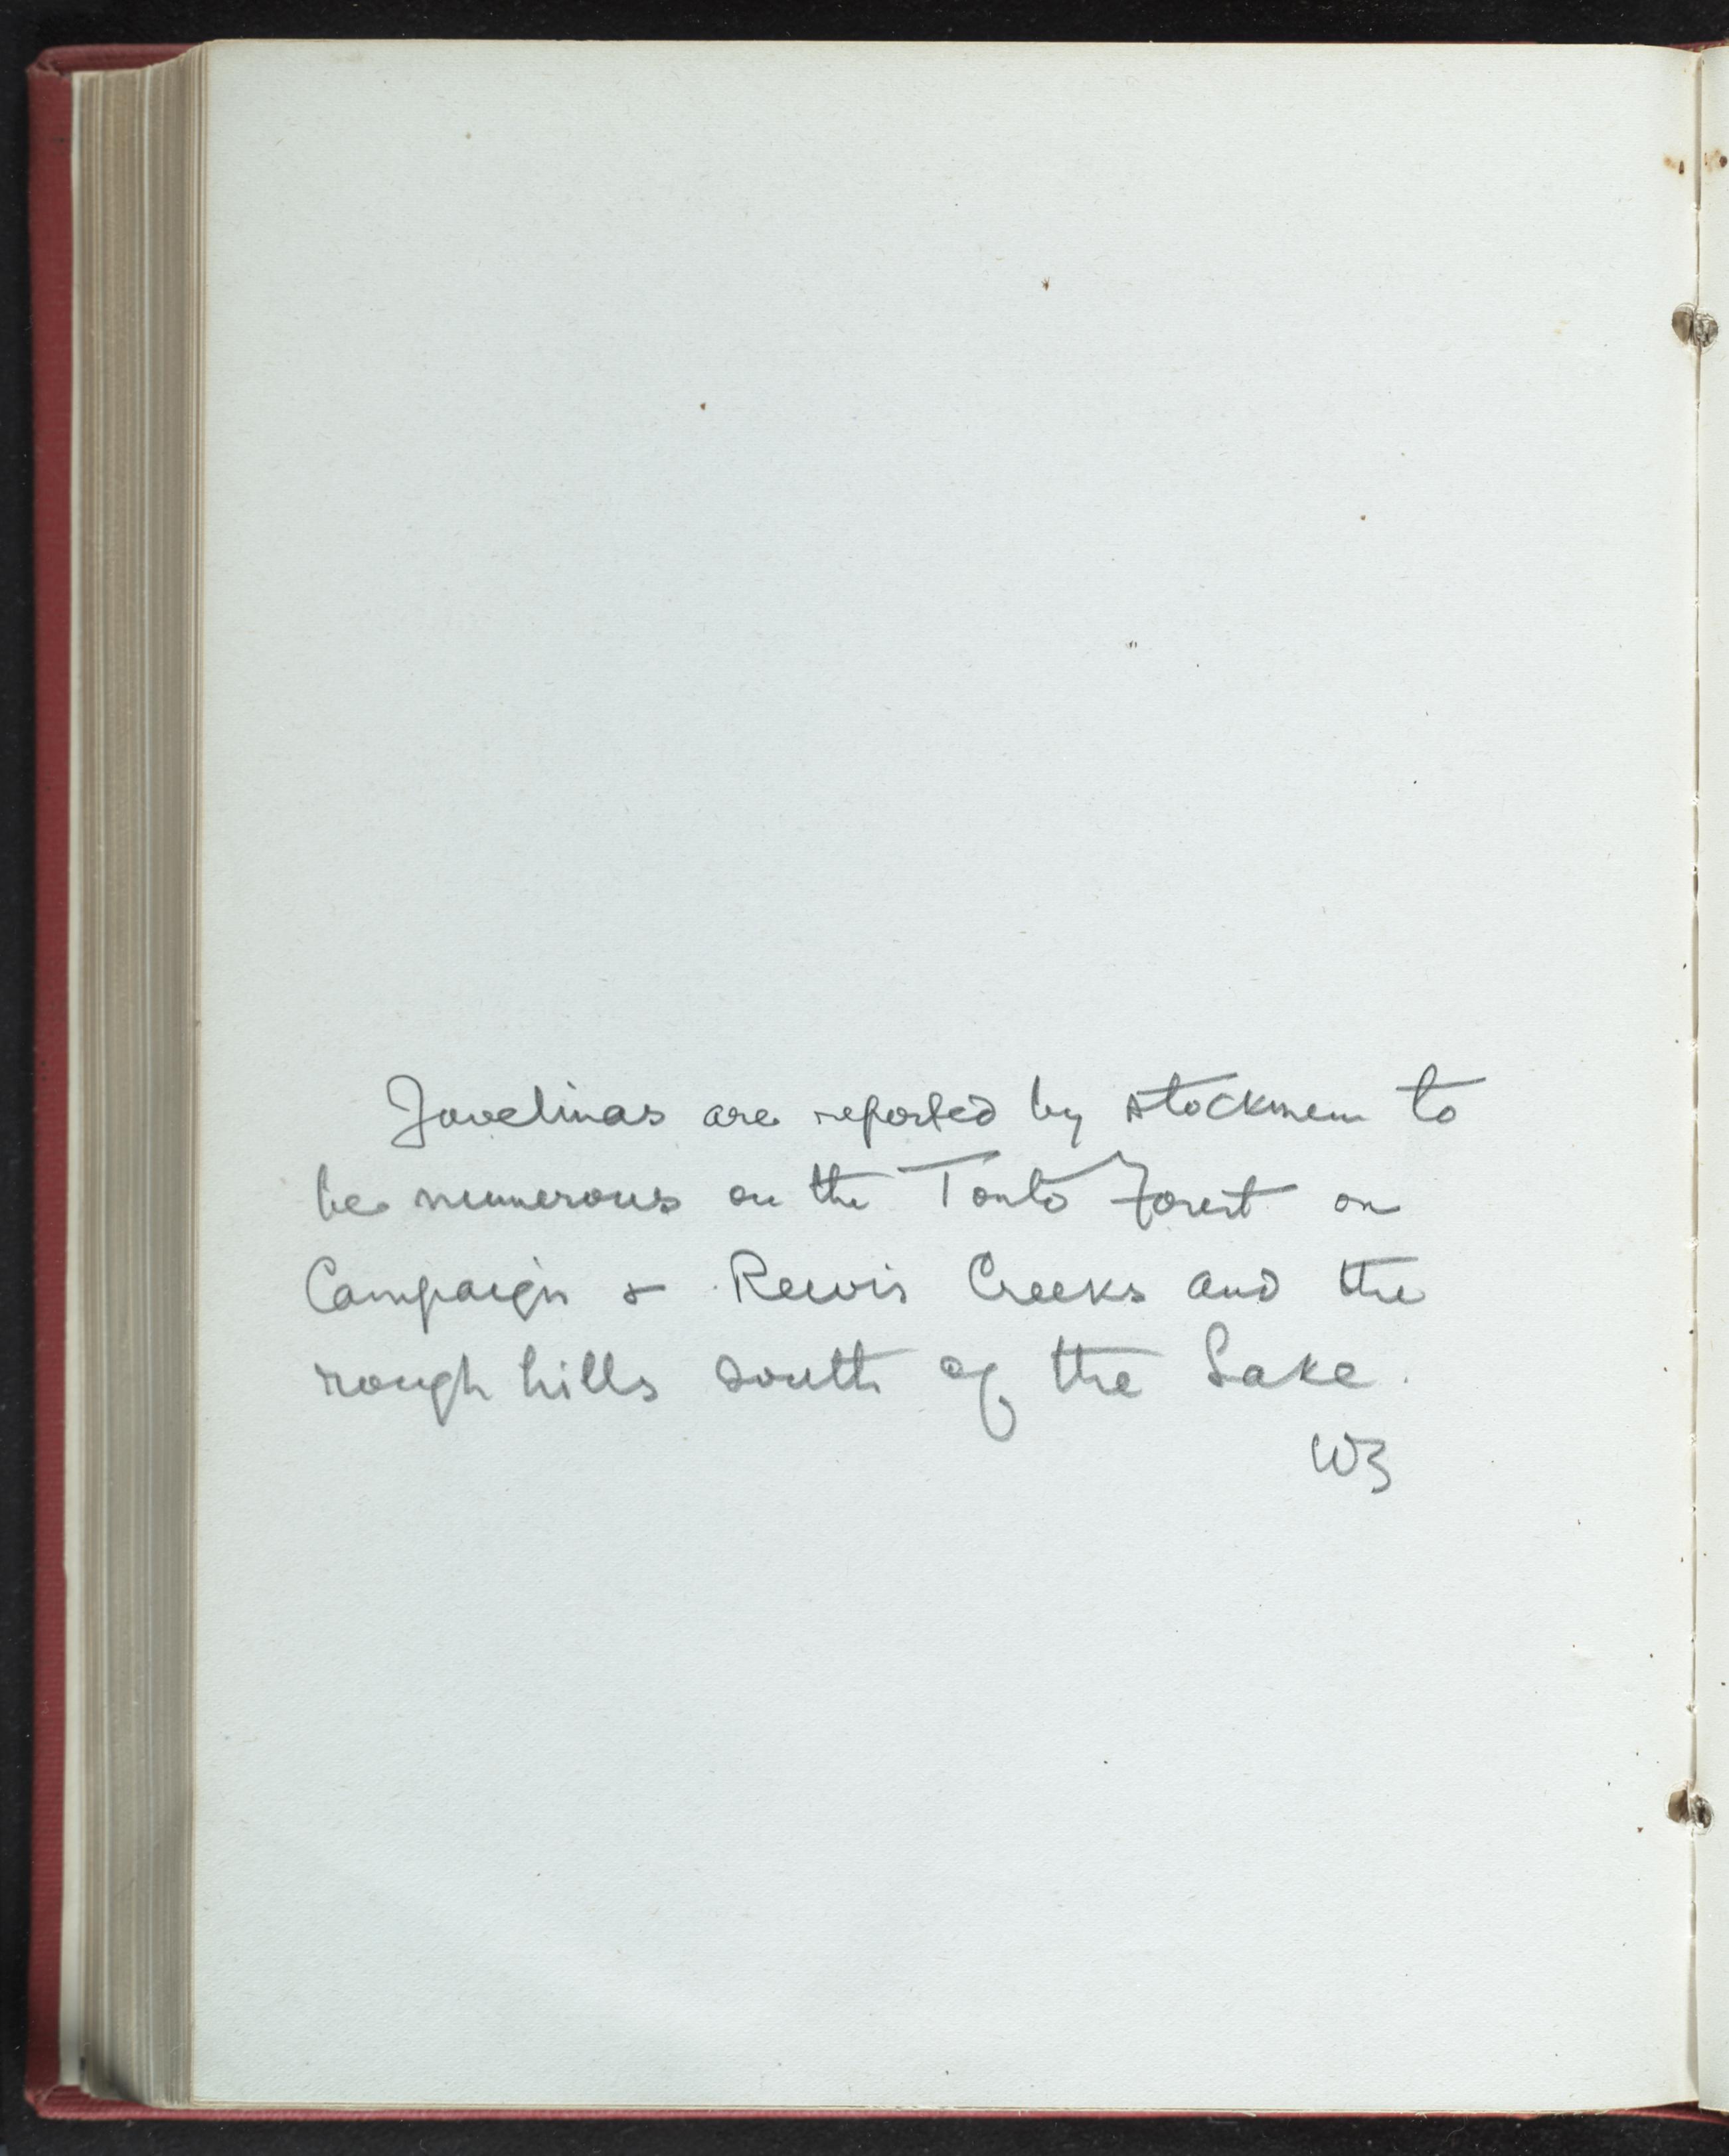 Javelinas are reported by stockmen to
be numerous on the Tonto Forest on
Campaign & Rewis Creeks and the
rough hills south of the Lake.